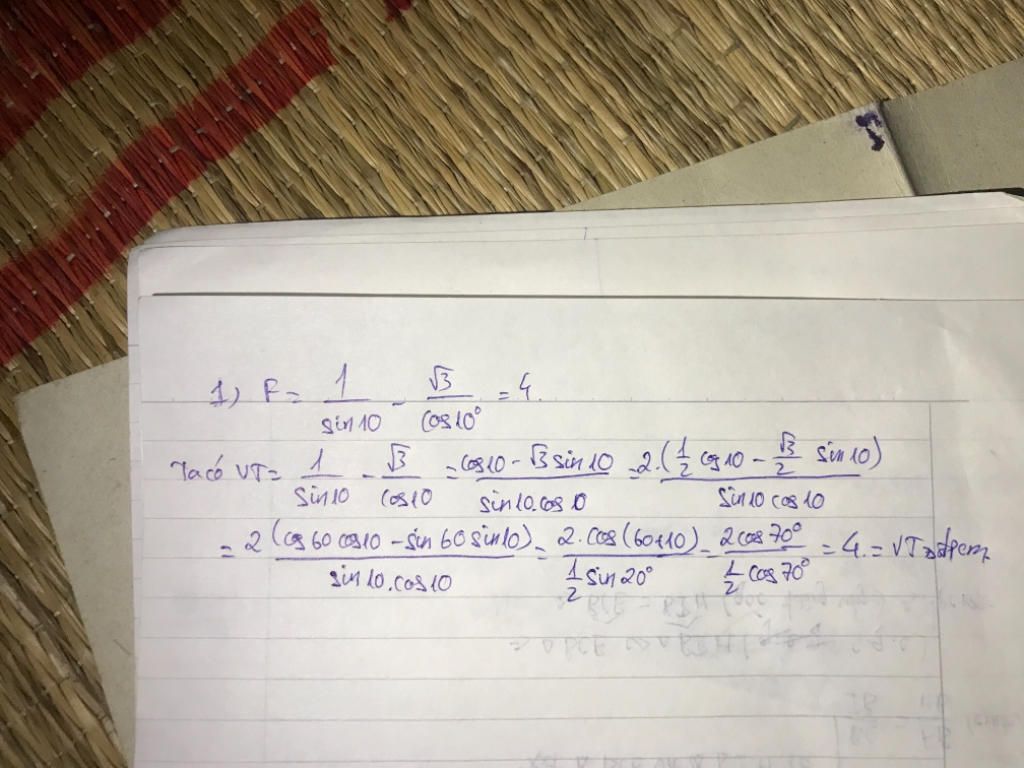 1) F = 1/sin10 - √3/cos10° = 4.
Ta có VT = 1/sin10 - √3/cos10 = (cos10 - √3 sin10)/(sin10.cos10) = 2.(1/2 cos10 - √3/2 sin10)/(sin10 cos10)
= 2(cos60 cos10 - sin60 sin10)/(sin10.cos10) = 2.cos(60+10)/(1/2 sin20°) = 2cos70°/(1/2 cos70°) = 4. = VT → đpcm